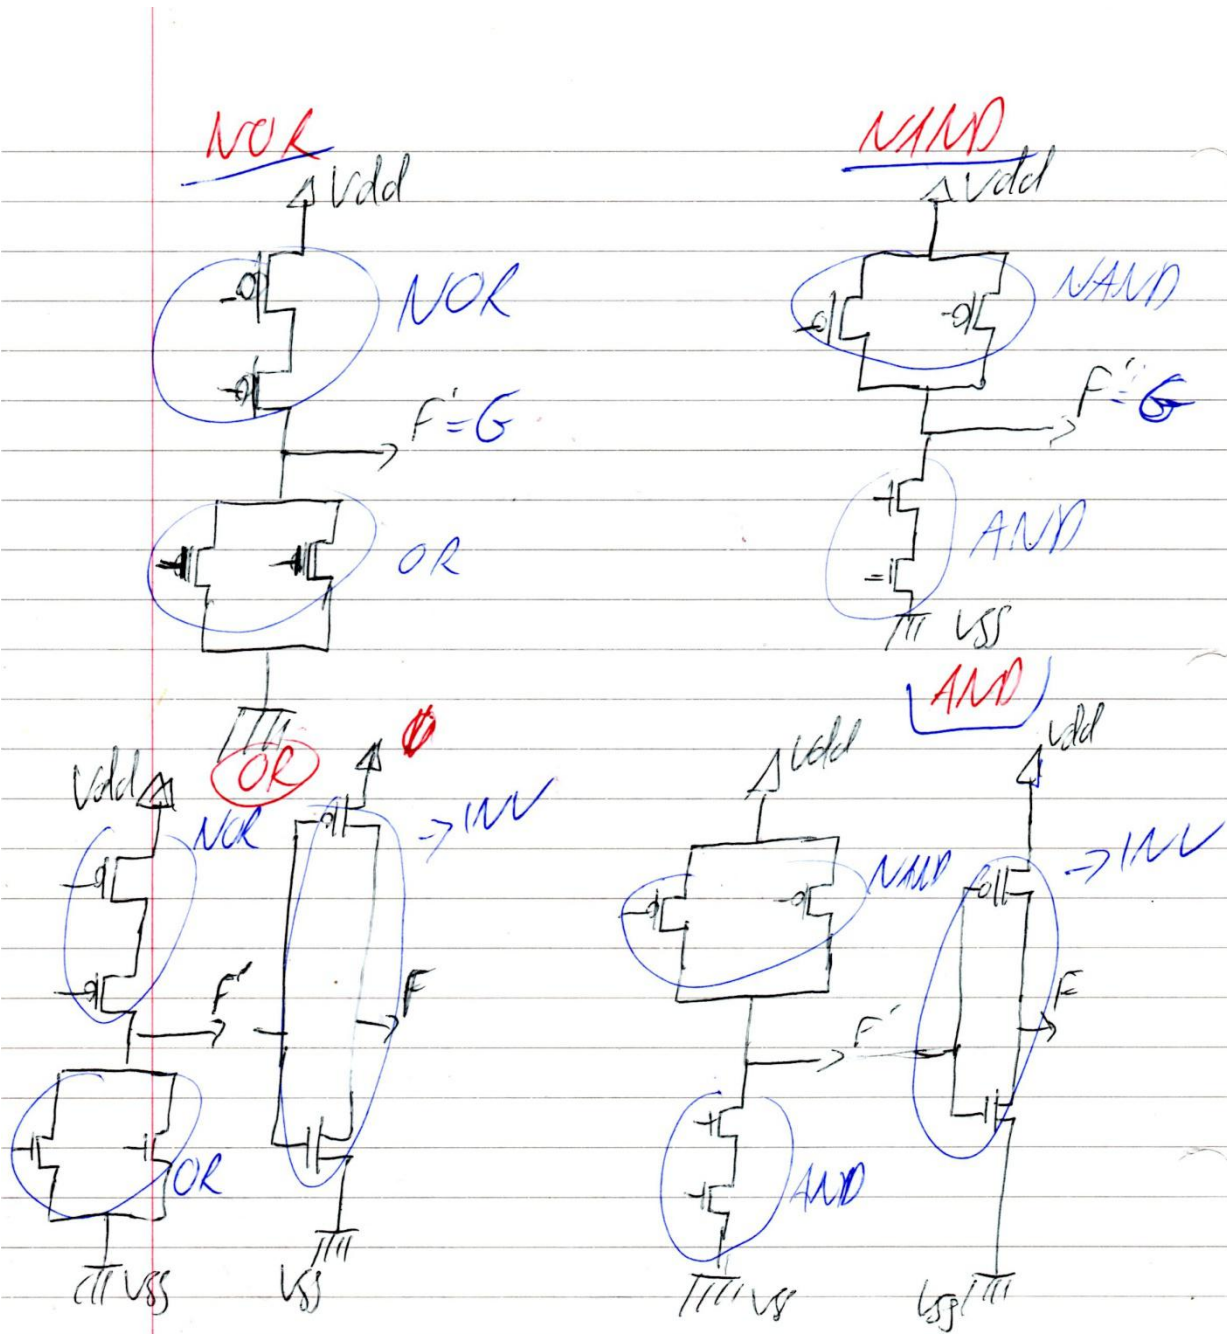 NOR
Vdd
NOR
F'=G
OR
NAND
Vdd
NAND
F'=G
AND
VSS
OR
Vdd
NOR
→INV
F'
F
OR
VSS
VSS
AND
Vdd
Vdd
NAND
→INV
F'
F
AND
VSS
VSS